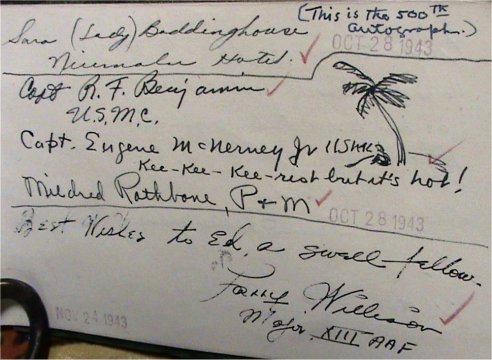 (This is the 500th
autograph.)
Sara (Lady) Boddinghouse
OCT 28 1943
Hotel
Capt R. F. Benjamin
U.S.M.C.
Capt. Eugene McNerney Jr USMC
Kee-Kee-Kee-rist but it's hot!
Mildred Rathbone, P & M
OCT 28 1943
Best Wishes to Ed, a swell fellow.
Major XIII AAF
NOV 24 1943